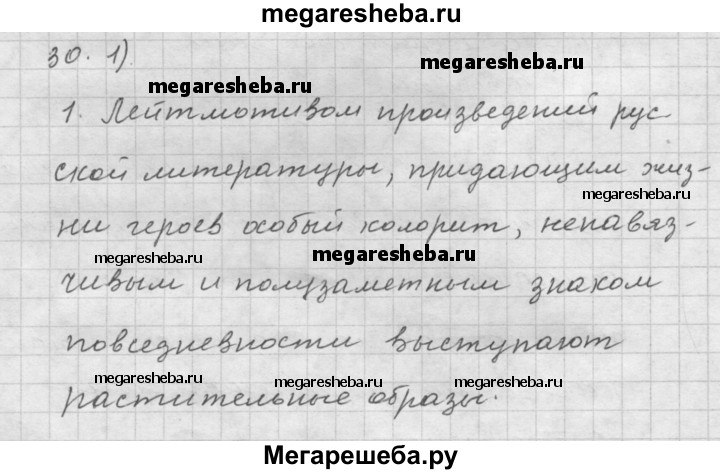 megaresheba.ru
30. 1).
megaresheba.ru
megaresheba.ru
1. Лейтмотивом произведений рус-
ской литературы, придающим жиз-
megaresheba.ru
ни героев особый колорит, ненавяз-
megaresheba.ru
megaresheba.ru
чивым и полузаметным знаком
повседневности выступают
megaresheba.ru
megaresheba.ru
megaresheba.ru
растительные образы.
Мегарешеба.ру